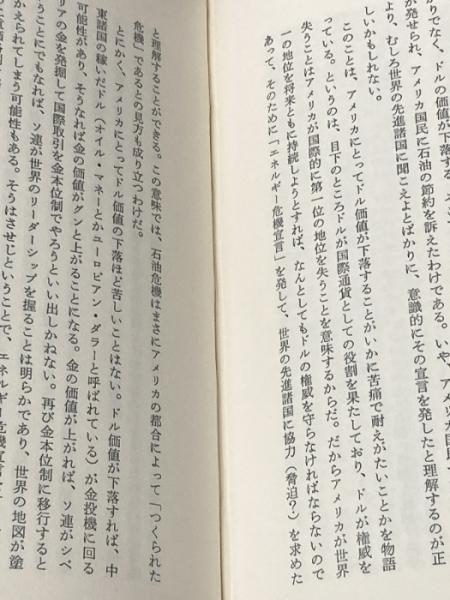 かりでなく、ドルの価値が下落する
が発せられ、アメリカ国民に石油の節約を訴えたわけである。いや、アメリカ国民
より、むしろ世界の先進諸国に聞こえよとばかりに、意識的にその宣言を発したと理解するのが正
しいかもしれない。
このことは、アメリカにとってドル価値が下落することがいかに苦痛で耐えがたいことかを物語
っている。というのは、目下のところドルが国際通貨としての役割を果たしており、ドルが権威を
失うことはアメリカが国際的に第一位の地位を失うことを意味するからだ。だからアメリカが世界
一の地位を将来ともに持続しようとすれば、なんとしてもドルの権威を守らなければならないので
あって、そのために「エネルギー危機宣言」を発して、世界の先進諸国に協力（脅迫？）を求めた
と理解することができる。この意味では、石油危機はまさにアメリカの都合によって「つくられた
危機」であるとの見方も成り立つわけだ。
とにかく、アメリカにとってドル価値の下落ほど苦しいことはない。ドル価値が下落すれば、中
東諸国の稼いだドル（オイル・マネーとかユーロピアン・ダラーと呼ばれている）が金投機に回る
可能性があり、そうなれば金の価値がグンと上がることになる。金の価値が上がれば、ソ連がシベ
リアの金を発掘して国際取引を金本位制でやろうといい出しかねない。再び金本位制に移行すると
うことにでもなれば、ソ連が世界のリーダーシップを握ることは明らかであり、世界の地図が塗
かえられてしまう可能性もある。そうはさせじということで、エネルギー危機宣言